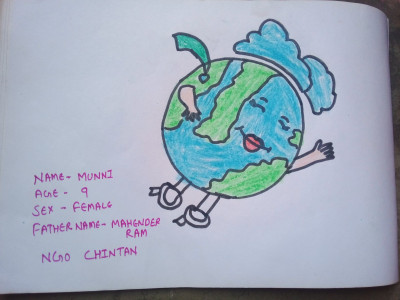 NAME - MUNNI
AGE - 9
SEX - FEMALE
FATHER NAME - MAHENDER
RAM
NGO CHINTAN